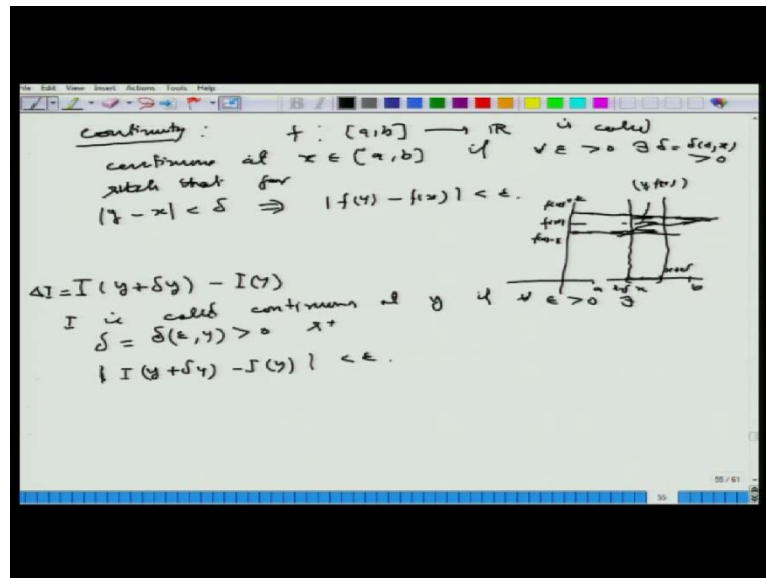 File Edit View Insert Actions Tools Help
continuity : f : [a,b] → IR is called
continuous at x ∈ [a,b] if ∀ ε > 0 ∃ δ = δ(ε,x) > 0
such that for
|y - x| < δ ⇒ |f(y) - f(x)| < ε.
(y f(x))
f(x)+ε
f(x)
f(x)-ε
x-δ x x+δ
a b
ΔI = I(y+δy) - I(y)
I is called continuous at y if ∀ ε > 0 ∃
δ = δ(ε,y) > 0 s+
| I(y+δy) - I(y) | < ε.
55 / 61
55